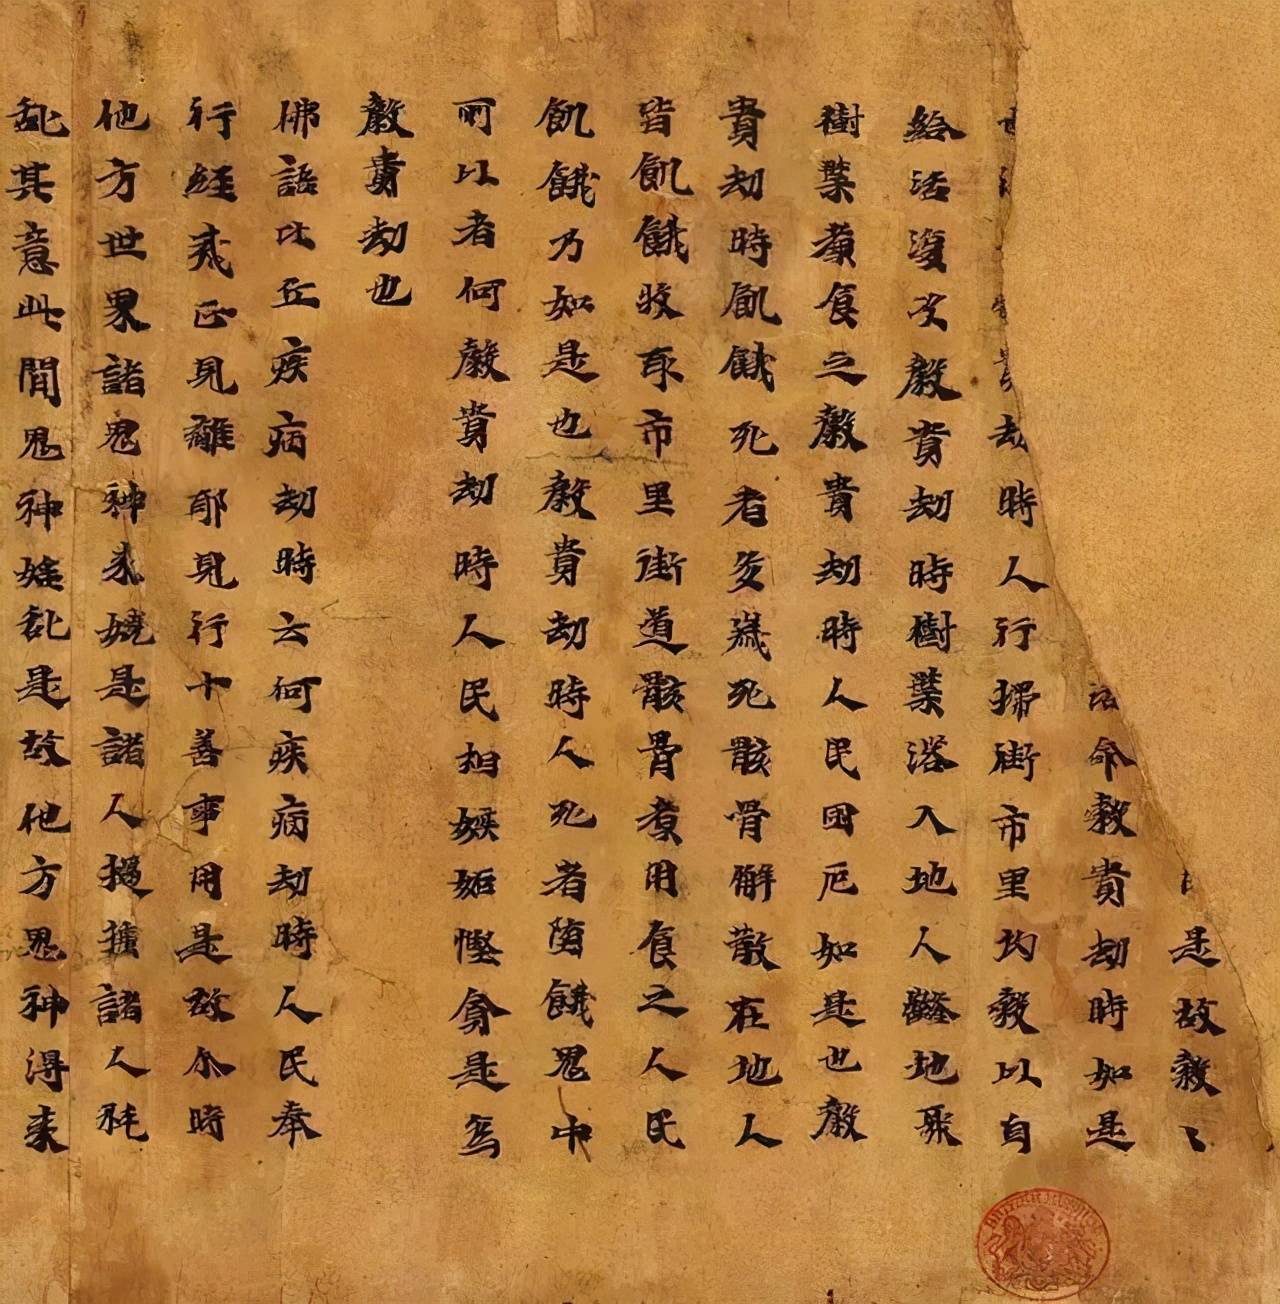 是故穀〻
活命穀貴劫時如是
劫時人行掃街市里均穀以自
給活復次穀貴劫時樹葉落入地人鑿地取
樹葉煑食之穀貴劫時人民困厄如是也穀
貴劫時飢餓死者多幾死骸骨解散在地人
皆飢餓收取市里街道骸骨煮用食之人民
飢餓乃如是也穀貴劫時人死者墮餓鬼中
所以者何穀貴劫時人民相嫉妬慳貪是為
穀貴劫也
佛語比丘疾病劫時云何疾病劫時人民奉
行經戒正見離耶見行十善事用是故尒時
他方世界諸鬼神来嬈是諸人撾捶諸人耗
乱其意此間鬼神婬乱是故他方鬼神得来